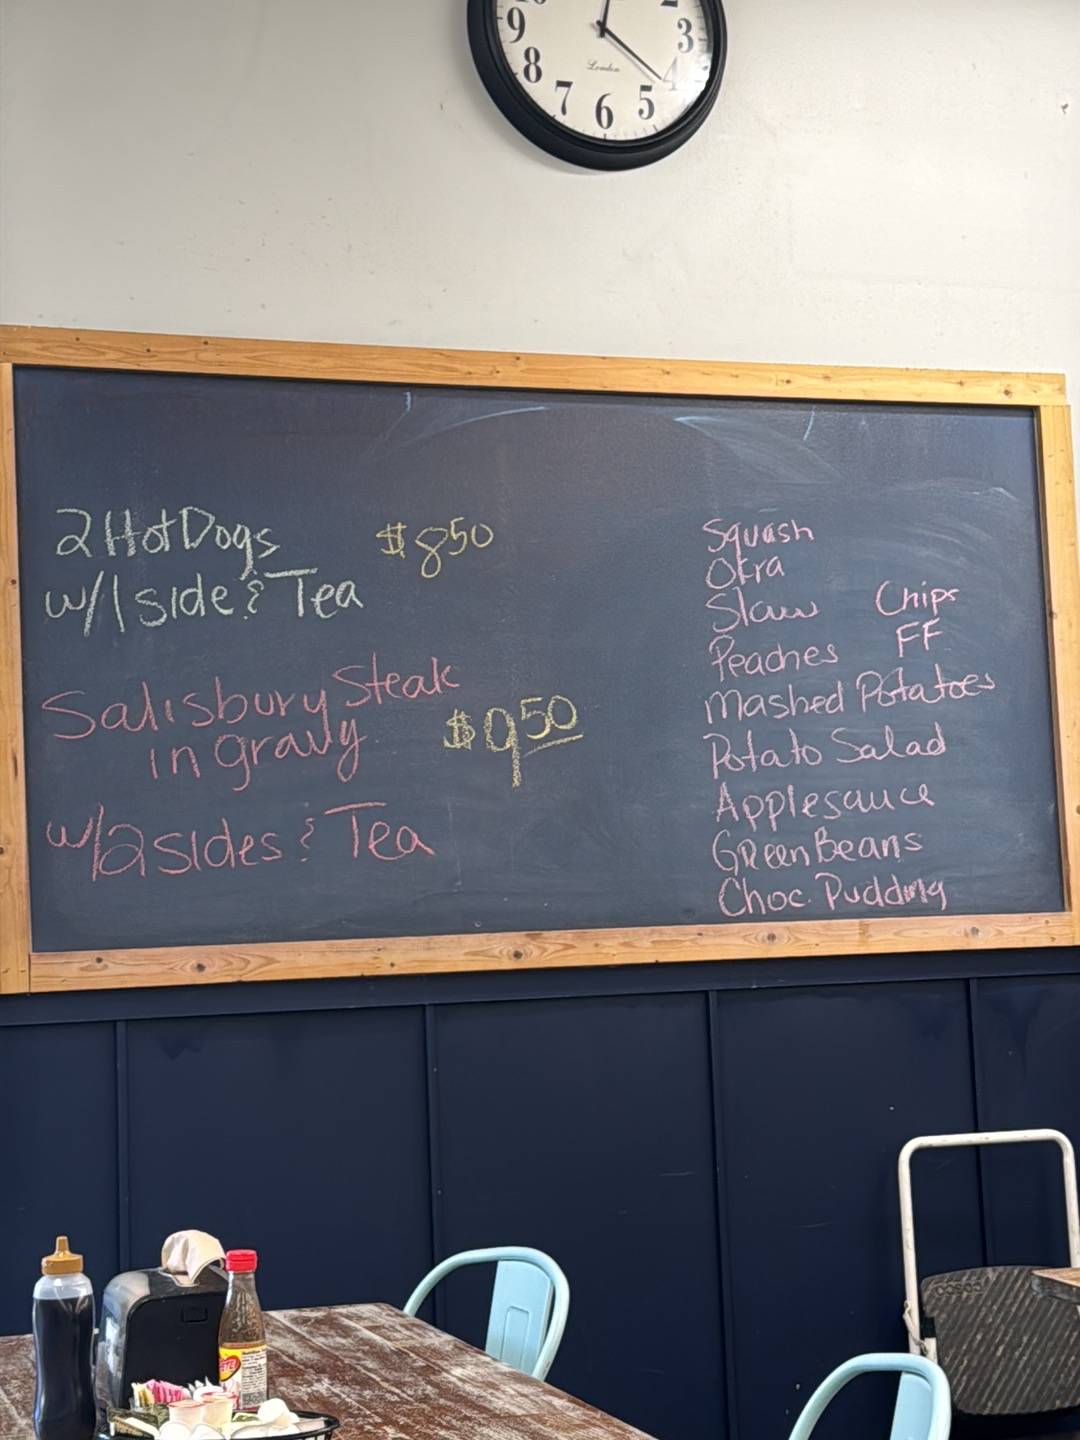 10
2
9
3
8
4
7
6
5
London
2 Hot Dogs
w/1 side & Tea
$8.50
Salisbury Steak
in gravy
$9.50
w/2 sides & Tea
Squash
Okra
Slaw
Chips
Peaches
FF
Mashed Potatoes
Potato Salad
Applesauce
Green Beans
Choc. Pudding
COSCO